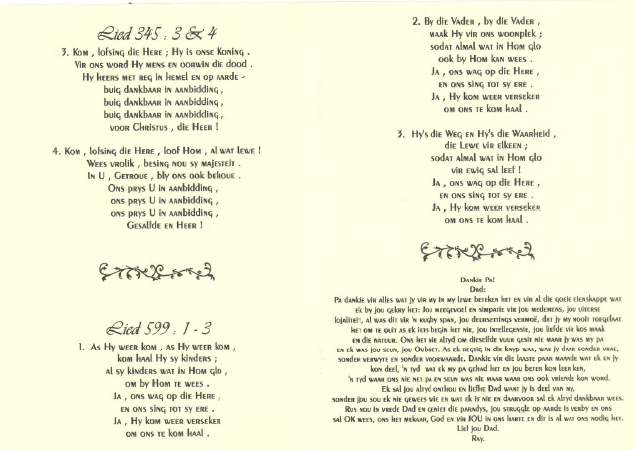 Lied 345 : 3 & 4
3. Kom , lofsing die Here ; Hy is onse Koning .
Vir ons word Hy mens en oorwin die dood .
Hy heers met reg in hemel en op aarde -
buig dankbaar in aanbidding ,
buig dankbaar in aanbidding ,
buig dankbaar in aanbidding ,
voor Christus , die Heer !
4. Kom , lofsing die Here , loof Hom , al wat lewe !
Wees vrolik , besing nou sy majesteit .
In U , Getroue , bly ons ook behoue .
Ons prys U in aanbidding ,
ons prys U in aanbidding ,
ons prys U in aanbidding ,
Gesalfde en Heer !
Lied 599 : 1 - 3
1. As Hy weer kom , as Hy weer kom ,
kom haal Hy sy kinders ;
al sy kinders wat in Hom glo ,
om by Hom te wees .
Ja , ons wag op die Here ,
en ons sing tot sy ere .
Ja , Hy kom weer verseker
om ons te kom haal .
2. By die Vader , by die Vader ,
maak Hy vir ons woonplek ;
sodat almal wat in Hom glo
ook by Hom kan wees .
Ja , ons wag op die Here ,
en ons sing tot sy ere .
Ja , Hy kom weer verseker
om ons te kom haal .
3. Hy's die Weg en Hy's die Waarheid ,
die Lewe vir elkeen ;
sodat almal wat in Hom glo
vir ewig sal leef !
Ja , ons wag op die Here ,
en ons sing tot sy ere .
Ja , Hy kom weer verseker
om ons te kom haal .
Dankie Pa!
Dad:
Pa dankie vir alles wat jy vir my in my lewe beteken het en vir al die goeie eienskappe wat
ek by jou gekry het: Jou meegevoel en simpatie vir jou medemens, jou uiterse
lojaliteit, al was dit vir 'n rugby span, jou deursettings vermoë, dat jy my nooit toegelaat
het om te quit as ek iets begin het nie, jou intellegensie, jou liefde vir kos maak
en die natuur. Ons het nie altyd om dieselfde vuur gesit nie maar jy was my pa
en ek was jou seun, jou Oubeet. As ek regtig in die knyp was, was jy daar sonder vrae,
sonder verwyte en sonder voorwaarde. Dankie vir die laaste paar maande wat ek en jy
kon deel, 'n tyd wat ek my pa gehad het en jou beter kon leer ken,
'n tyd waar ons nie net pa en seun was nie maar waar ons ook vriende kon word.
Ek sal jou altyd onthou en liefhe Dad want jy is deel van my,
sonder jou sou ek nie gewees vie en wat ek is nie en daarvoor sal ek altyd dankbaar wees.
Rus nou in vrede Dad en geniet die paradys, jou struggle op aarde is verby en ons
sal OK wees, ons het mekaar, God en vir JOU in ons harte en dit is al wat ons nodig het.
Lief jou Dad.
Ray.